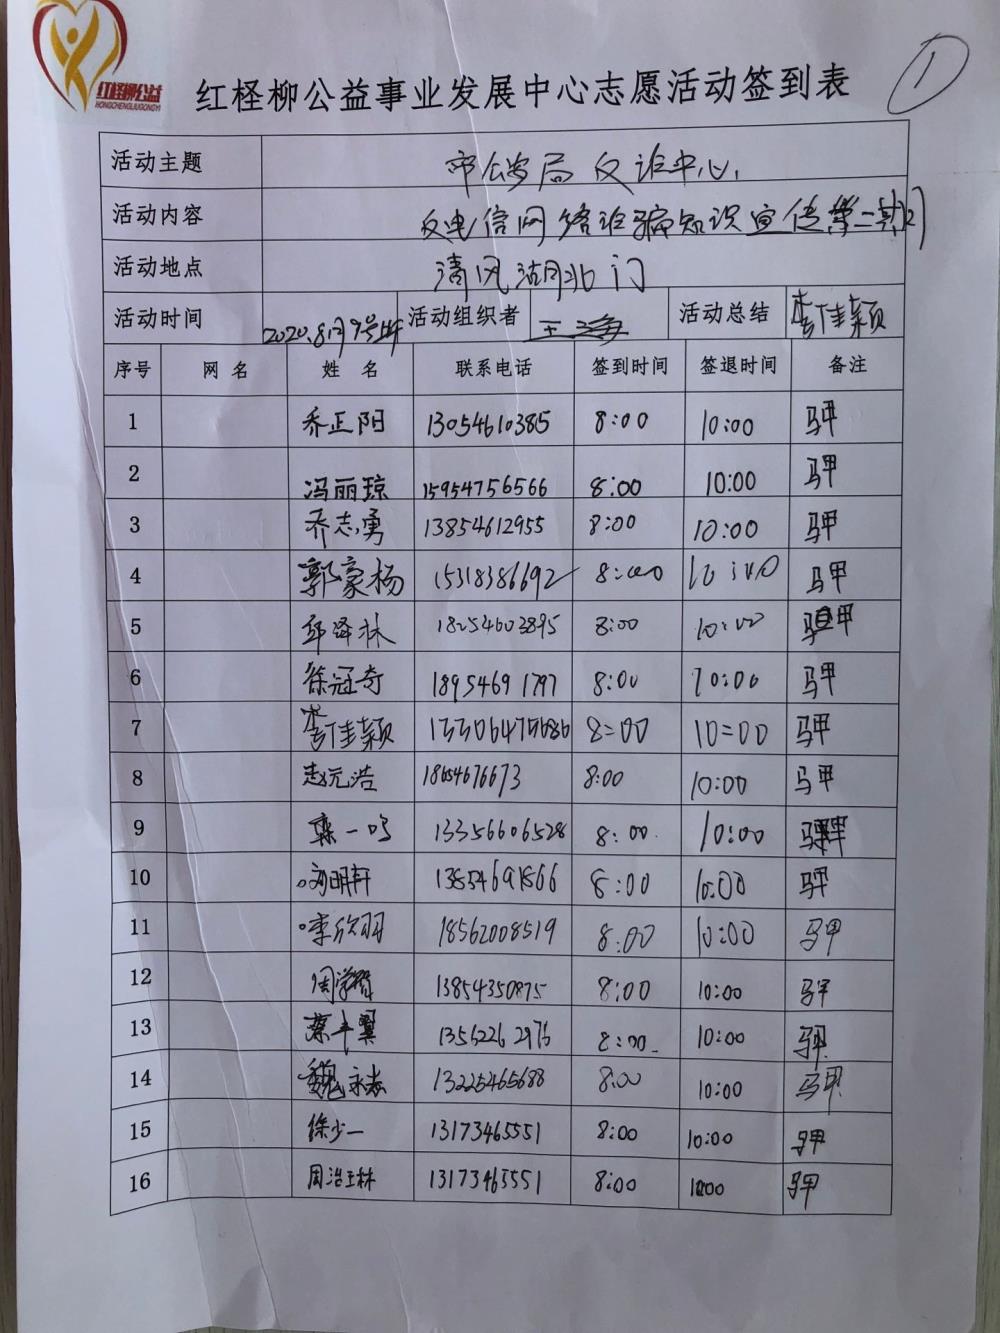 红柽柳公益
HONGCHENGLIUGONGYI
红柽柳公益事业发展中心志愿活动签到表
1
活动主题 市公安局反诈中心
活动内容 反电信网络诈骗知识宣传第二期
活动地点 清风湖北门
活动时间 2020.8月9号 活动组织者 王海 活动总结 李佳颖
序号 网名 姓名 联系电话 签到时间 签退时间 备注
1 乔正阳 13054610385 8:00 10:00 马甲
2 冯丽琼 15954756566 8:00 10:00 马甲
3 乔志勇 13854612955 8:00 10:00 马甲
4 郭豪杨 15318386692 8:00 10:00 马甲
5 邱泽林 18254603895 8:00 10:00 马甲
6 徐冠奇 18954691797 8:00 10:00 马甲
7 李佳颖 8=00 10=00 马甲
8 赵元浩 18654676673 8:00 10:00 马甲
9 栾一鸣 13356606528 8:00 10:00 马甲
10 刘明轩 13854691866 8:00 10:00 马甲
11 李欣羽 18562008519 8:00 10:00 马甲
12 周学 13854350875 8:00 10:00 马甲
13 翼 8:00 10:00 马甲
14 魏 13225465688 8:00 10:00 马甲
15 徐少一 13173465551 8:00 10:00 马甲
16 周浩林 13173465551 8:00 1000 马甲